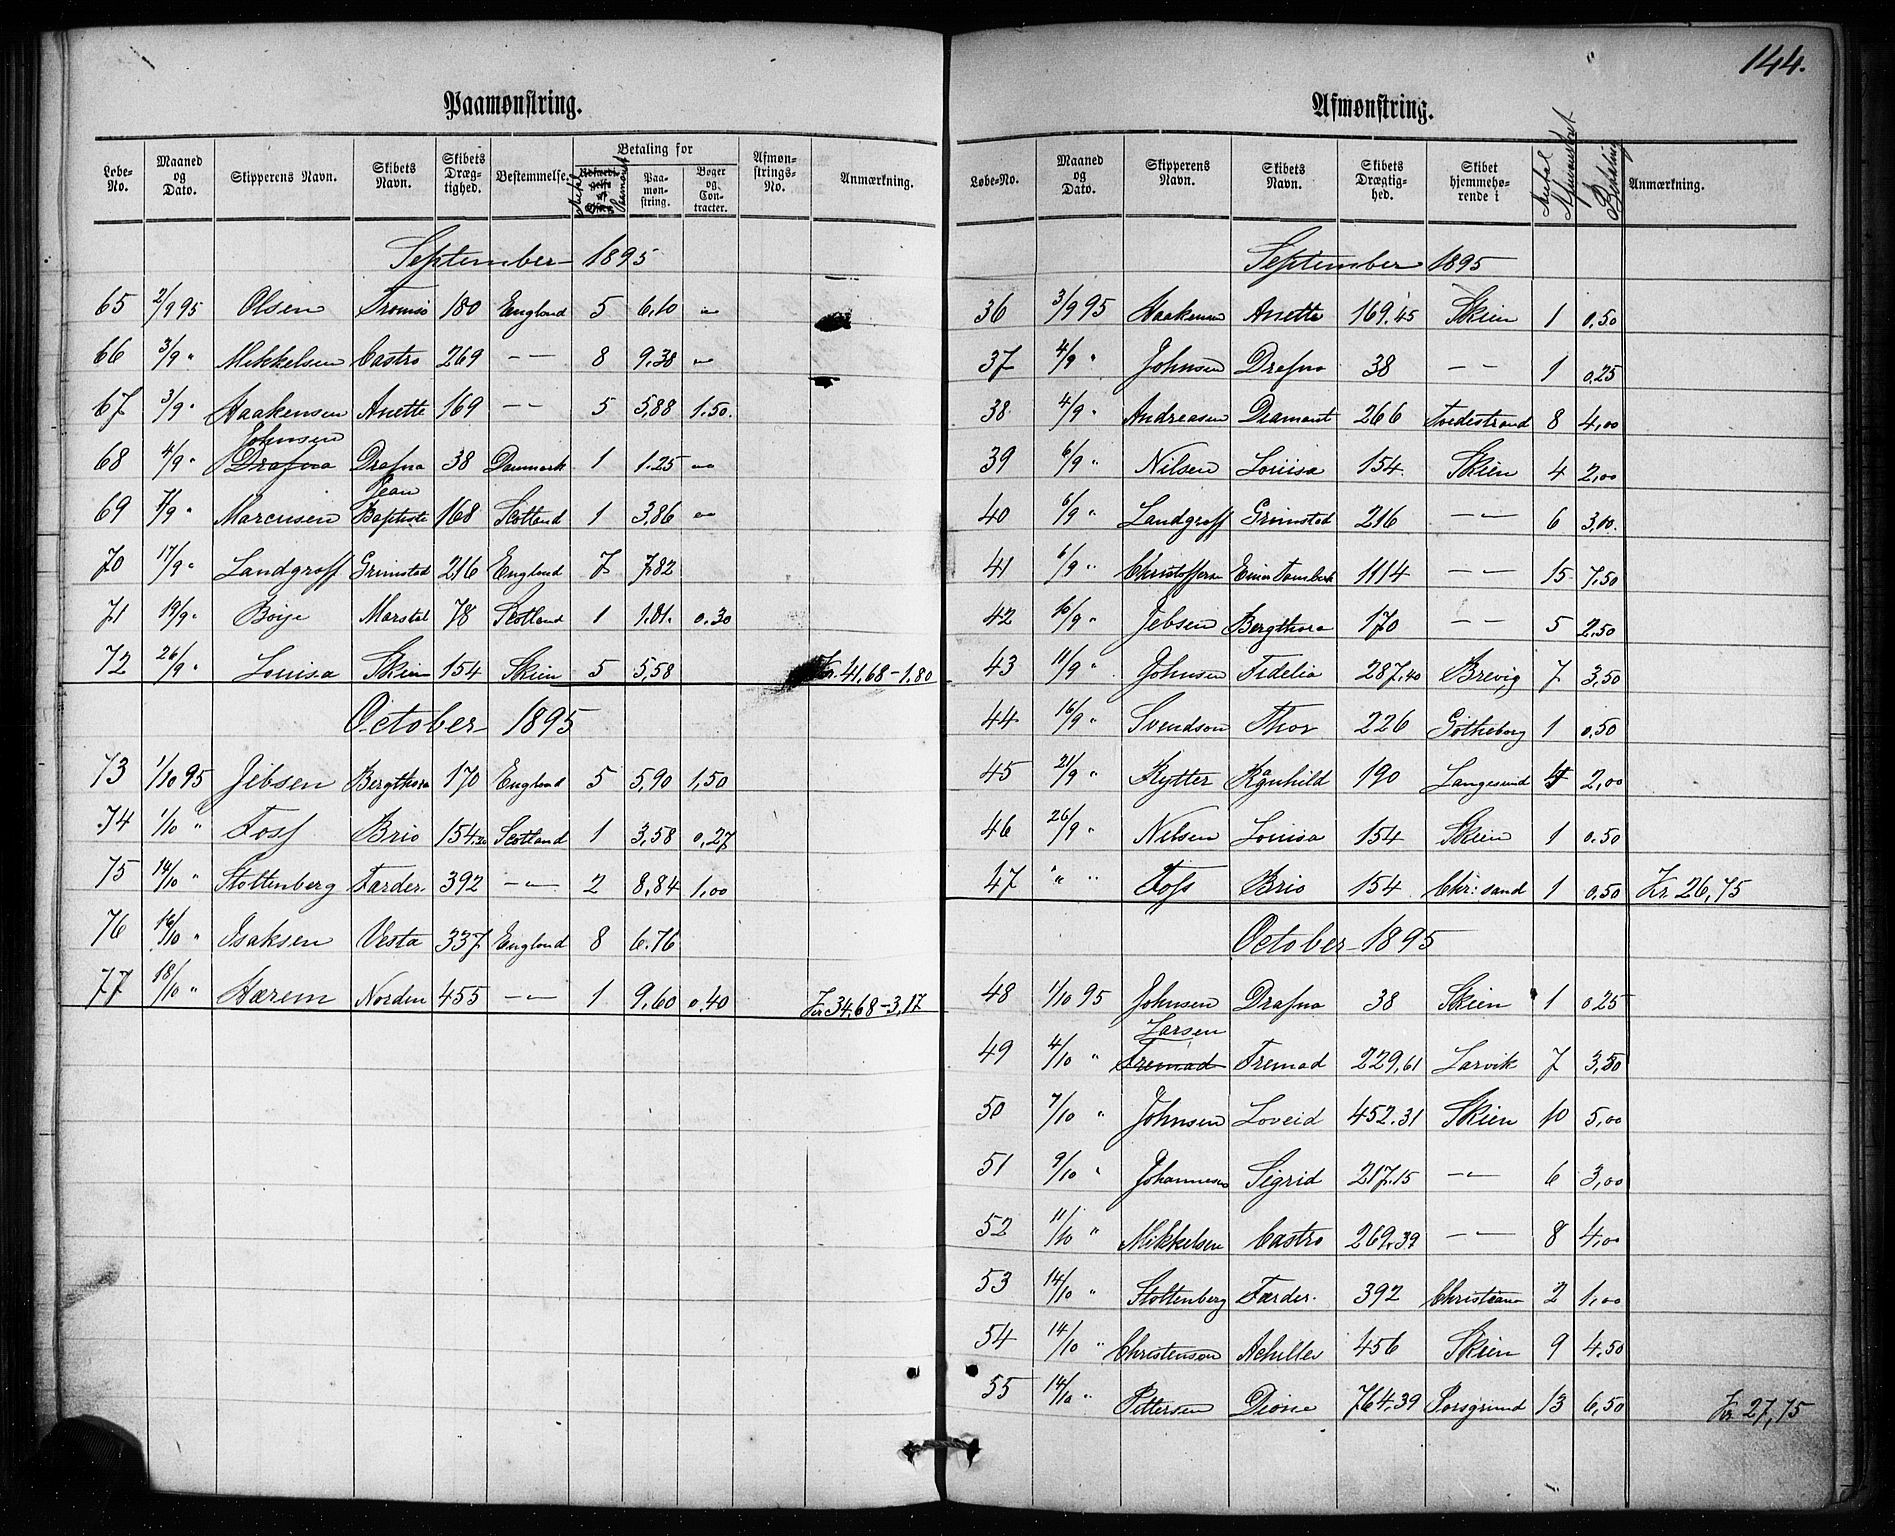 144.
Paamønstring.
Løbe-No. | Maaned og Dato. | Skipperens Navn. | Skibets Navn. | Skibets Drægtighed. | Bestemmelse. | Betaling for | Paamønstring. | Bøger og Contracter. | Afmønstrings-No. | Anmærkning.
September 1895
65 2/9 95 Olsen Tromsö 180 England 5 6,10 "
66 3/9 " Mikkelsen Castro 269 — " — 8 9.38 "
67 3/9 " Haakensen Anette 169 — " — 5 5,88 1.50.
Johnsen
68 4/9 " Drafna Drafna 38 Danmark 1 1.25 "
Jean
69 7/9 " Marcusen Baptiste 168 Scotland 1 3,86 "
70 17/9 " Landgraff Grimstad 216 England 7 7,82
71 19/9 " Böije Marstal 78 Scotland 1 1.01. 0.30
72 26/9 " Louisa Skien 154 Skien 5 5,58 Kr. 41,68 – 1,80
October 1895
73 1/10 95 Jebsen Bergthora 170 England 5 5,90 1,50
74 1/10 " Foss Brio 154.20 Scotland 1 3,58 0,27
75 14/10 " Stoltenberg Færder. 392 — " — 2 8,84 1,00
76 16/10 " Isaksen Vesta 337 England 8 6.76
77 18/10 " Hærem Norden 455 — " — 1 9,60 0,40 Kr 34,68 – 3,17
Afmønstring.
Løbe-No. | Maaned og Dato. | Skipperens Navn. | Skibets Navn. | Skibets Drægtighed. | Skibet hjemmehørende i | Antal Afmønstret | Betaling | Anmærkning.
September 1895
36 3/9 95 Haakensen Anette 169.45 Skien 1 0,50
37 4/9 " Johnsen Drafna 38 — " — 1 0,25
38 4/9 " Andreasen Diamant 266 Tvedestrand 8 4,00
39 6/9 " Nilsen Louisa 154. Skien 4 2,00
40 6/9 " Landgraff Grimstad 216 — " — 6 3,00.
41 6/9 " 1114 — " — 15 7,50
42 10/9 " Jebsen Bergthora 170 — " — 5 2,50
43 11/9 " Johnsen Fidelia 287,40 Brevig 7 3,50
44 16/9 " Svendson Thor 226 Gotheborg 1 0,50
45 21/9 " Rytter Ragnhild 190 Langesund 4 2,00
46 26/9 " Nilsen Louisa 154 Skien 1 0.50
47 " " Foss Brio 154 Chr: sand 1 0,50 Kr 26,75
October 1895
48 1/10 95 Johnsen Drafna 38 Skien 1 0,25
Larsen
49 4/10 " Fremad Fremad 229,61 Larvik 7 3,50
50 7/10 " Johnsen Loveid 452.31 Skien 10 5,00
51 9/10 " Johannesen Sigrid 217.15 — " — 6 3,00
52 11/10 " Mikkelsen Castro 269.39 — " — 8 4,00
53 14/10 " Stoltenberg Færder. 392 Christiania 2 1,00
54 14/10 " Christenson Achilles 456 Skien 9 4,50
55 14/10 " Pettersen Dione 764.39 Porsgrund 13 6,50 Kr 27,75